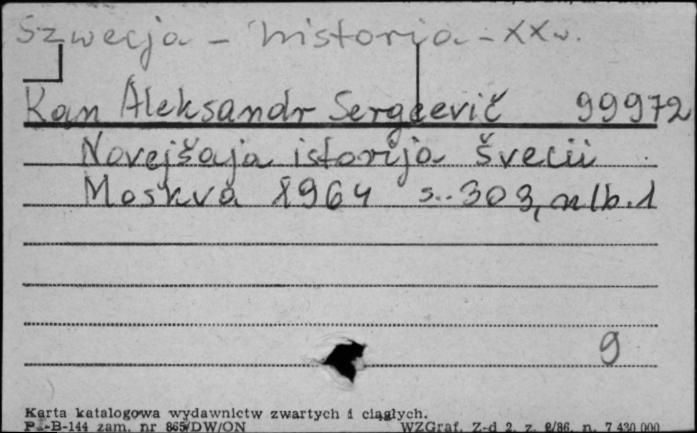 Szwecja - historja - XX w.
Kan Aleksandr Sergeevič 99972
Novejšaja istorija Švecii
Moskva 1964 s. 303, nlb. 1
9
Karta katalogowa wydawnictw zwartych i ciągłych.
-B-144 zam. nr 865/DW/ON WZGraf. Z-d 2, z. 2/86, n. 7 430 000